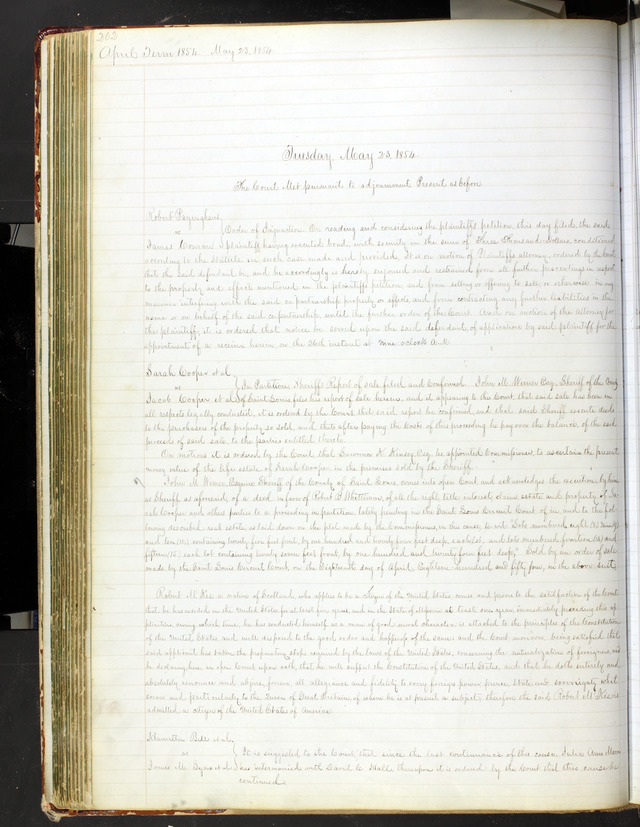 202
April Term 1854. May 23, 1854
Tuesday May 23, 1854
The Court Met pursuant to adjournment Present as before
Robert
vs Order of Injunction. On reading and considering the plaintiffs petition this day filed, the said
James plaintiff having executed bond, with security in the sum of Three Thousand dollars, conditioned
according to the statute in such case made and provided, It is on motion of Plaintiffs attorney, ordered by the Court
that the said defendant be, and he accordingly is hereby enjoined and restrained from all further proceedings in respect
to the property and effects mentioned in the plaintiffs petition, and from selling or offering to sell, or otherwise in any
manner interfering with the said co-partnership property or effects, and from contracting any further liabilities in the
name or on behalf of the said co-partnership, until the further order of the Court. And on motion of the Attorney for
the plaintiff, it is ordered that notice be served upon the said defendant, of application by said plaintiff for the
appointment of a receiver herein on the 26th instant at nine oclock A.M.
Sarah Cooper et al
vs In Partition. Sheriffs Report of sale filed and Confirmed. John M. Wimer Esq. Sheriff of the County
Jacob Cooper et al of Saint Louis files his report of sale herein, and it appearing to the Court that said sale has been in
all respects legally conducted, it is ordered by the Court that said report be confirmed, and that said Sheriff execute deeds
to the purchasers of the property so sold, and that after paying the costs of this proceeding he pay over the balance, of the said
proceeds of said sale, to the parties entitled thereto.
On motion it is ordered by the Court that H. Esq. be appointed Commissioner, to ascertain the present
money value of the life estate of Sarah Cooper in the premises sold by the Sheriff.
John M. Wimer Esquire Sheriff of the County of Saint Louis, comes into open Court and acknowledges the execution by him
as Sheriff as aforesaid of a deed in favor of Robert of all the right, title, interest, claim, estate and property, of Sa-
rah Cooper and other parties to a proceeding in partition lately pending in the Saint Louis Circuit Court of in and to the fol-
lowing described real estate, as laid down on the plat made by the Commissioners, in the cause to wit: "Lots numbered eight (8)
and ten (10) containing twenty five feet front, by one hundred and twenty four feet deep, each lot, and lots numbered fourteen (14) and
fifteen (15) each lot containing twenty some feet front, by one hundred and twenty four feet deep," Sold by an order of sale
made by the Saint Louis Circuit Court, on the Eighteenth day of April Eighteen hundred and fifty four, in the above suit.
Robert M. a native of Scotland, who applies to be a citizen of the United States, comes and proves to the satisfaction of the Court
that he has resided in the United States for at least five years, and in the State of Missouri at least one year, immediately preceding this ap-
plication, during which time, he has conducted himself as a man of good moral character, is attached to the principles of the Constitution
of the United States, and well disposed to the good order and happiness of the same: and the Court moreover being satisfied that
said applicant has taken the preparatory steps required by the laws of the United States, concerning the naturalization of foreigners, and
he declaring here, in open Court upon oath, that he will support the Constitution of the United States, and that he doth entirely and
absolutely renounce and abjure, forever, all allegiance and fidelity to every foreign power, prince, State and sovereignty what-
soever and particularly to the Queen of Great Britain, of whom he is at present a subject, therefore the said Robert M. is
admitted a citizen of the United States of America.
Hamilton et al
vs It is suggested to the Court that since the last continuance of this cause, Julia Ann
James et al has intermarried with David Hall, thereupon it is ordered by the Court that this cause be
continued.